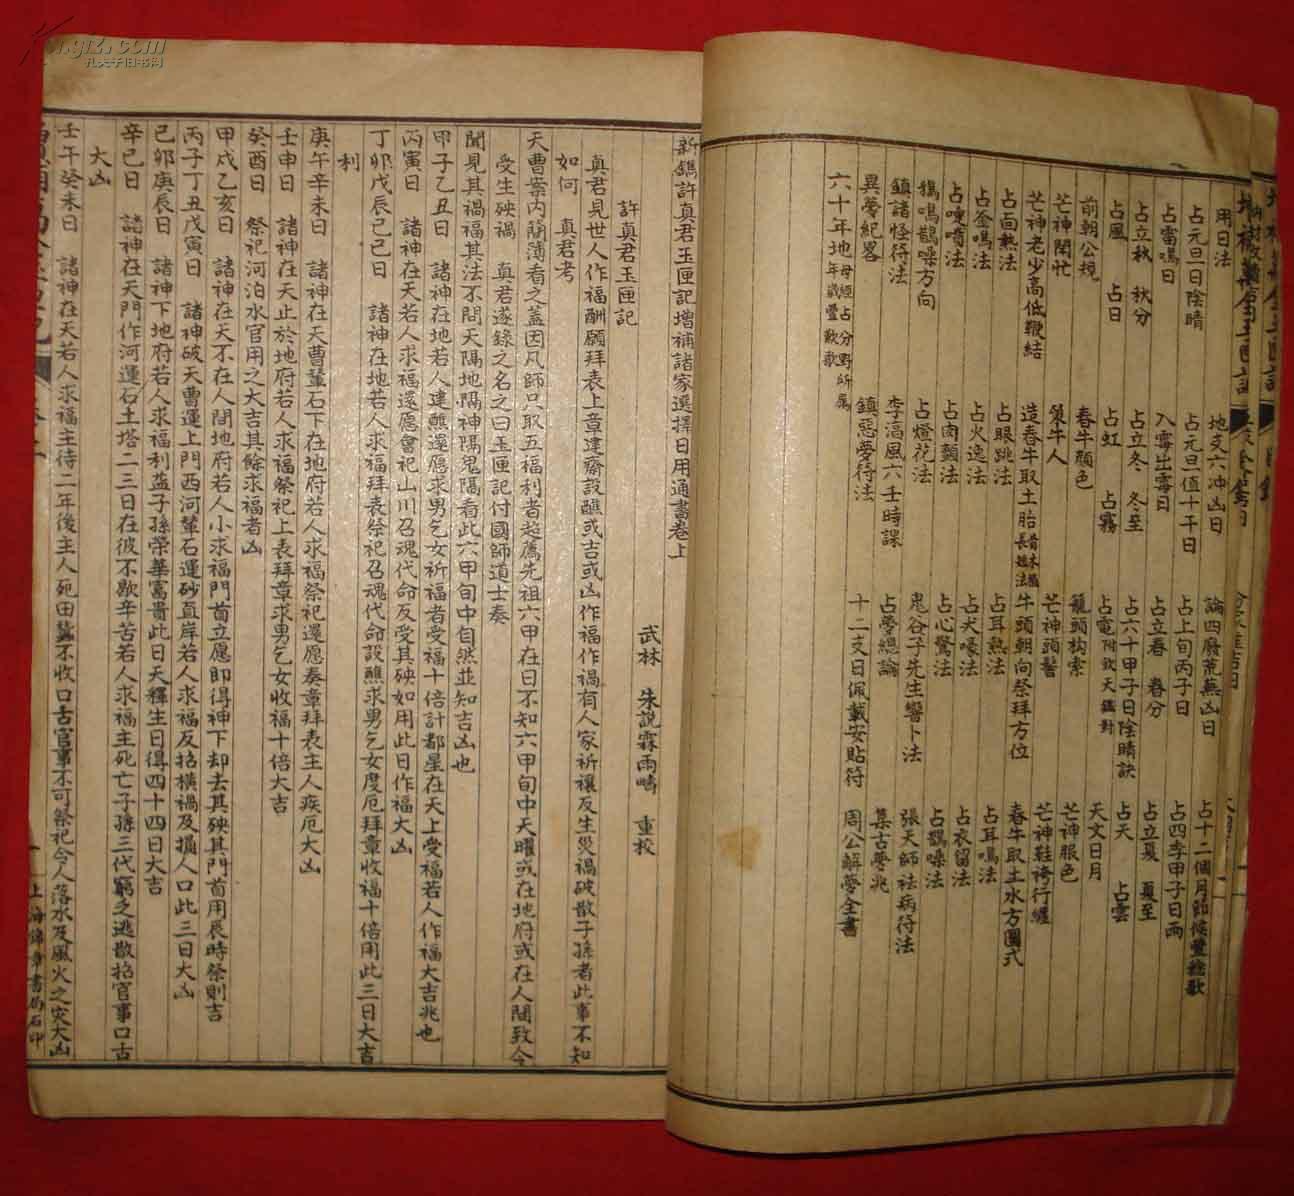 用日法
地支六冲凶日
論四廢荒蕪凶日
占十二個月節候豐稔歌
占元旦日陰晴
占元旦值十干日
占上旬丙子日
占四季甲子日雨
占雷鳴日
入霉出霉日
占立春 春分
占立夏 夏至
占立秋 秋分
占立冬 冬至
占六十甲子日陰晴訣
占天 占雲
占風 占日
占虹 占霧
占電附欽天鑑對
天文日月
前朝公規
春牛顏色
籠頭构索
芒神服色
芒神閑忙
策牛人
芒神頭髻
芒神鞋袴行纏
芒神老少高低鞭結
造春牛取土胎
牛頭朝向祭拜方位
春牛取土水方圖式
占面熱法
占眼跳法
占耳熱法
占耳鳴法
占釜鳴法
占火逸法
占犬嚎法
占衣留法
占嚏噴法
占肉顫法
占心驚法
占鵲噪法
鴉鳴鵲噪方向
占燈花法
鬼谷子先生響卜法
張天師祛病符法
鎮諸怪符法
李淳風六壬時課
占夢總論
集古夢兆
異夢紀畧
鎮惡夢符法
十二支日佩戴安貼符
周公解夢全書
六十年地母經占分野所屬年歲豐歉歌
新鐫許真君玉匣記增補諸家選擇日用通書卷上
武林 朱說霖雨疇 重校
許真君玉匣記
真君見世人作福酬願拜表上章建齋設醮或吉或凶作福作禍有人家祈禳反生災禍破散子孫者此事不知
如何 真君考
天曹案內簡簿看之蓋因凡師只取五福利者超薦先祖六甲在日不知六甲旬中天曜或在地府或在人間致令
受生殃禍 真君遂錄之名之曰玉匣記付國師道士奏
聞見其禍福其法不問天隔地隔神隔鬼隔看此六甲旬中自然並知吉凶也
甲子乙丑日 諸神在地若人建醮還愿求男乞女祈福者受福十倍計都星在天上受福若人作福大吉兆也
丙寅日 諸神在天若人求福還愿會祀山川召魂代命反受其殃如用此日作福大凶
丁卯戊辰己巳日 諸神在地若人求福拜表祭祀召魂代命設醮求男乞女度厄拜章收福十倍用此三日大吉
利
庚午辛未日 諸神在天曹輦石下在地府若人求福祭祀還愿奏章拜表主人疾厄大凶
壬申日 諸神在天止於地府若人求福祭祀上表拜章求男乞女收福十倍大吉
癸酉日 祭祀河泊水官用之大吉其餘求福者凶
甲戌乙亥日 諸神在天不在人間地府若人小求福門首立愿即得神下却去其殃其門首用辰時祭則吉
丙子丁丑戊寅日 諸神破天曹運上門西河輦石運砂直岸若人求福反招橫禍及損人口此三日大凶
己卯庚辰日 諸神下地府若人求福利益子孫榮華富貴此日天釋生日得四十四日大吉
辛巳日 諸神在天門作河運石土塔二三日在彼不歇辛苦若人求福主死亡子孫三代窮乏逃散招官事口舌
大凶
壬午癸未日 諸神在天若人求福主待二年後主人死田蠶不收口舌官事不可祭祀今人落水及風火之灾大凶
上海錦章書局石印
kongfz.com
孔夫子旧书网